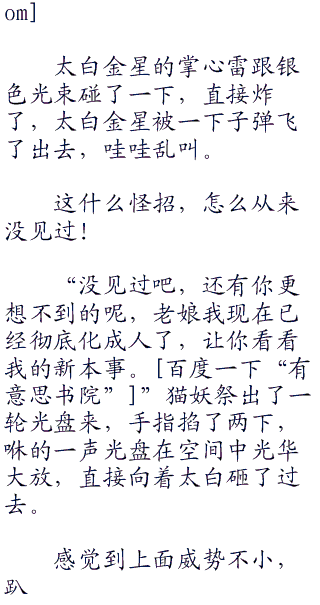 om]
太白金星的掌心雷跟银
色光束碰了一下，直接炸
了，太白金星被一下子弹飞
了出去，哇哇乱叫。
这什么怪招，怎么从来
没见过！
“没见过吧，还有你更
想不到的呢，老娘我现在已
经彻底化成人了，让你看看
我的新本事。[百度一下“有
意思书院”]”猫妖祭出了一
轮光盘来，手指掐了两下，
咻的一声光盘在空间中光华
大放，直接向着太白砸了过
去。
感觉到上面威势不小，
趴